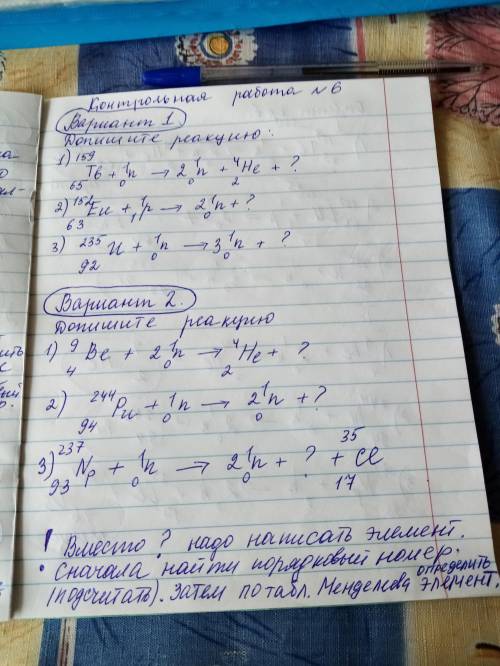 Контрольная работа №6
Вариант 1
Допишите реакцию:
1) ¹⁵⁹₆₅Tb + ¹₀n → 2¹₀n + ⁴₂He + ?
2) ¹⁵²₆₃Eu + ₁p → 2¹₀n + ?
3) ²³⁵₉₂U + ¹₀n → 3¹₀n + ?
Вариант 2.
Допишите реакцию
1) ⁹₄Be + 2¹₀n → ⁴₂He + ?
2) ²⁴⁴₉₄Pu + ¹₀n → 2¹₀n + ?
3) ²³⁷₉₃Np + ¹₀n → 2¹₀n + ? + ³⁵₁₇Cl
! Вместо ? надо написать элемент.
Сначала найти порядковый номер.
(подсчитать). Затем по табл. Менделеева определить элемент.